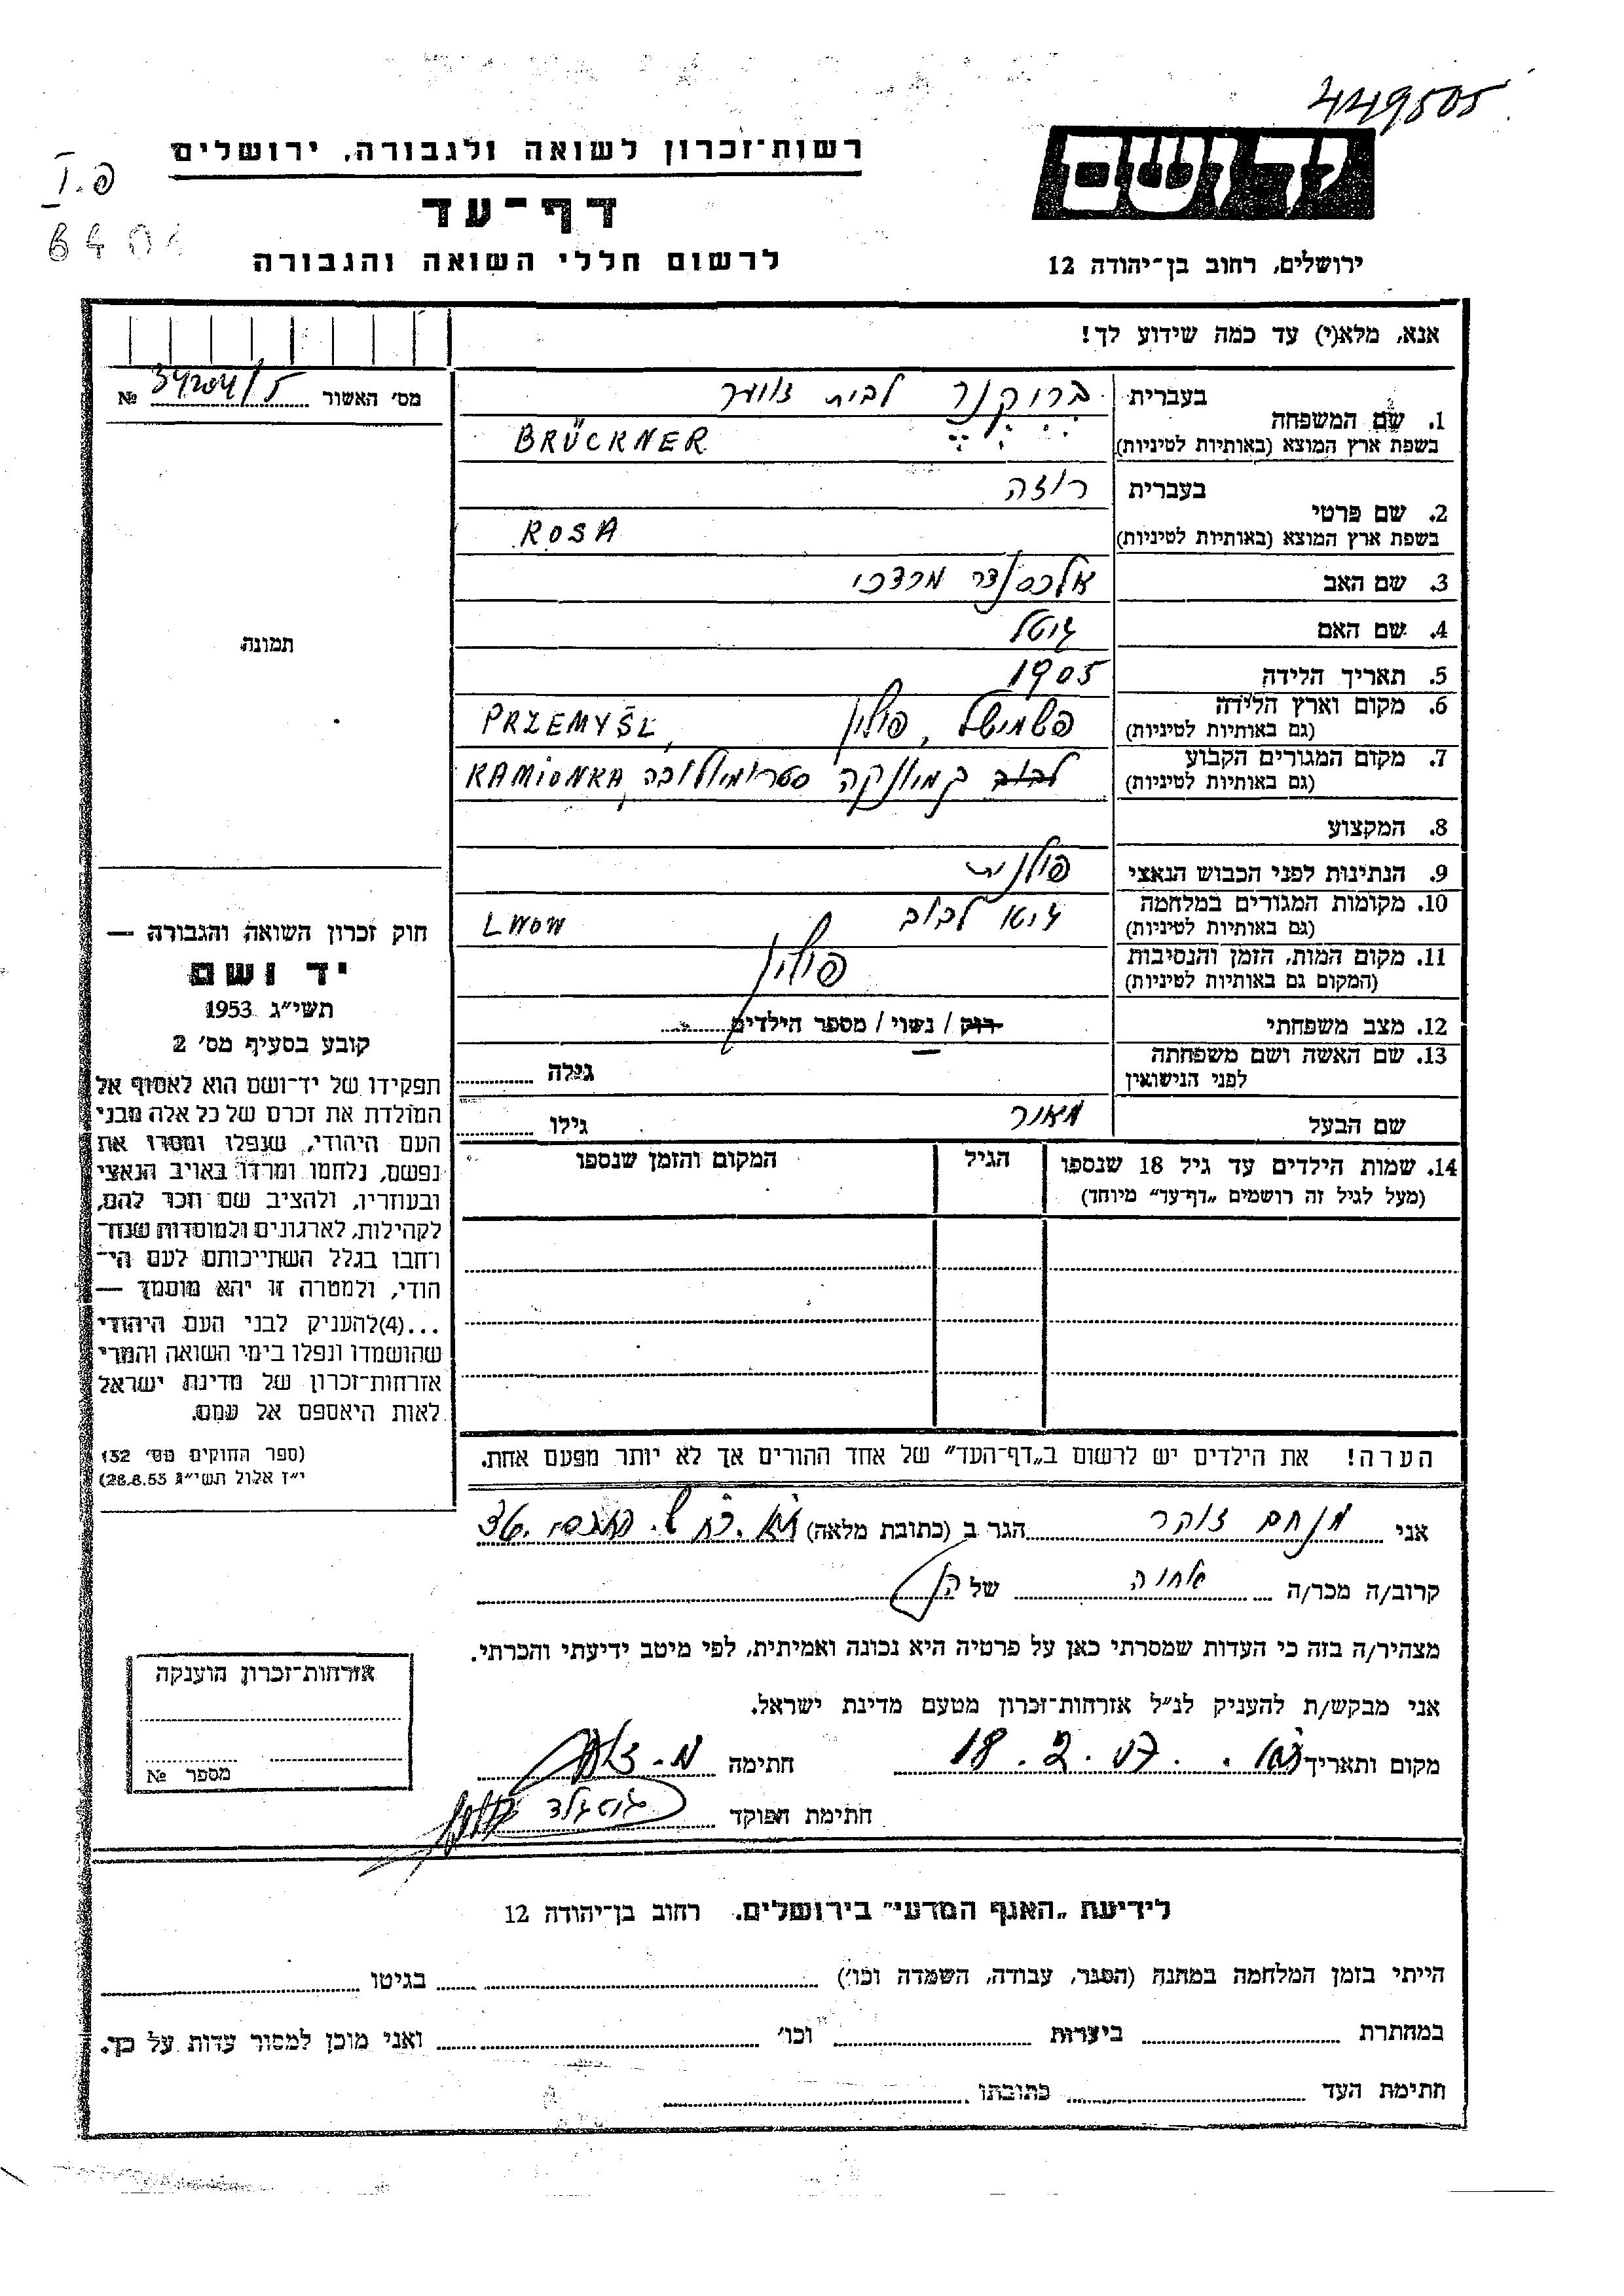 449505
רשות־זכרון לשואה ולגבורה, ירושלים
יד ושם
פ.I
דף־עד
לרשום חללי השואה והגבורה
ירושלים, רחוב בן־יהודה 12
אנא, מלא(י) עד כמה שידוע לך!
מס׳ האשור 34204/5 №
1. שם המשפחה
בעברית ברוקנר לבית צוקר
בשפת ארץ המוצא (באותיות לטיניות) BRÜCKNER
2. שם פרטי
בעברית רוזה
בשפת ארץ המוצא (באותיות לטיניות) ROSA
3. שם האב אלכסנדר מרדכי
4. שם האם גיטל
5. תאריך הלידה 1905
6. מקום וארץ הלידה
(גם באותיות לטיניות) פשמישל, פולין PRZEMYŚL,
7. מקום המגורים הקבוע
(גם באותיות לטיניות) לבוב קמיונקה סטרומילובה, KAMIONKA
8. המקצוע
9. הנתינות לפני הכבוש הנאצי פולנית
10. מקומות המגורים במלחמה
(גם באותיות לטיניות) גיטו לבוב LWOW
11. מקום המות, הזמן והנסיבות
(המקום גם באותיות לטיניות) פולין
12. מצב משפחתי רוק / נשוי / מספר הילדים
13. שם האשה ושם משפחתה
לפני הנישואין גילה
שם הבעל מאור גילו
14. שמות הילדים עד גיל 18 שנספו הגיל המקום והזמן שנספו
(מעל לגיל זה רושמים „דף־עד״ מיוחד)
הערה! את הילדים יש לרשום ב„דף־העד״ של אחד ההורים אך לא יותר מפעם אחת.
תמונה
חוק זכרון השואה והגבורה —
יד ושם
תשי״ג 1953
קובע בסעיף מס׳ 2
תפקידו של יד־ושם הוא לאסוף אל
המולדת את זכרם של כל אלה מבני
העם היהודי, שנפלו ומסרו את
נפשם, נלחמו ומרדו באויב הנאצי
ובעוזריו, ולהציב שם וזכר להם,
לקהילות, לארגונים ולמוסדות שנח־
רחבו בגלל השתייכותם לעם הי־
הודי, ולמטרה זו יהא מוסמך —
...(4)להעניק לבני העם היהודי
שהושמדו ונפלו בימי השואה והמרי
אזרחות־זכרון של מדינת ישראל
לאות היאספם אל עמם.
(ספר החוקים מס׳ 132
י״ז אלול תשי״ג 28.8.53)
אני מנחם צוקר הגר ב (כתובת מלאה)
קרוב/ה מכר/ה אחיה של
מצהיר/ה בזה כי העדות שמסרתי כאן על פרטיה היא נכונה ואמיתית, לפי מיטב ידיעתי והכרתי.
אני מבקש/ת להעניק לנ״ל אזרחות־זכרון מטעם מדינת ישראל.
מקום ותאריך 18.2.57 חתימה
חתימת הפוקד
אזרחות־זכרון הוענקה
מספר №
לידיעת „האגף המדעי״ בירושלים. רחוב בן־יהודה 12
הייתי בזמן המלחמה במחנה (הסגר, עבודה, השמדה וכו׳) בגיטו
במחתרת ביערות וכו׳ ואני מוכן למסור עדות על כך.
חתימת העד כתובתו